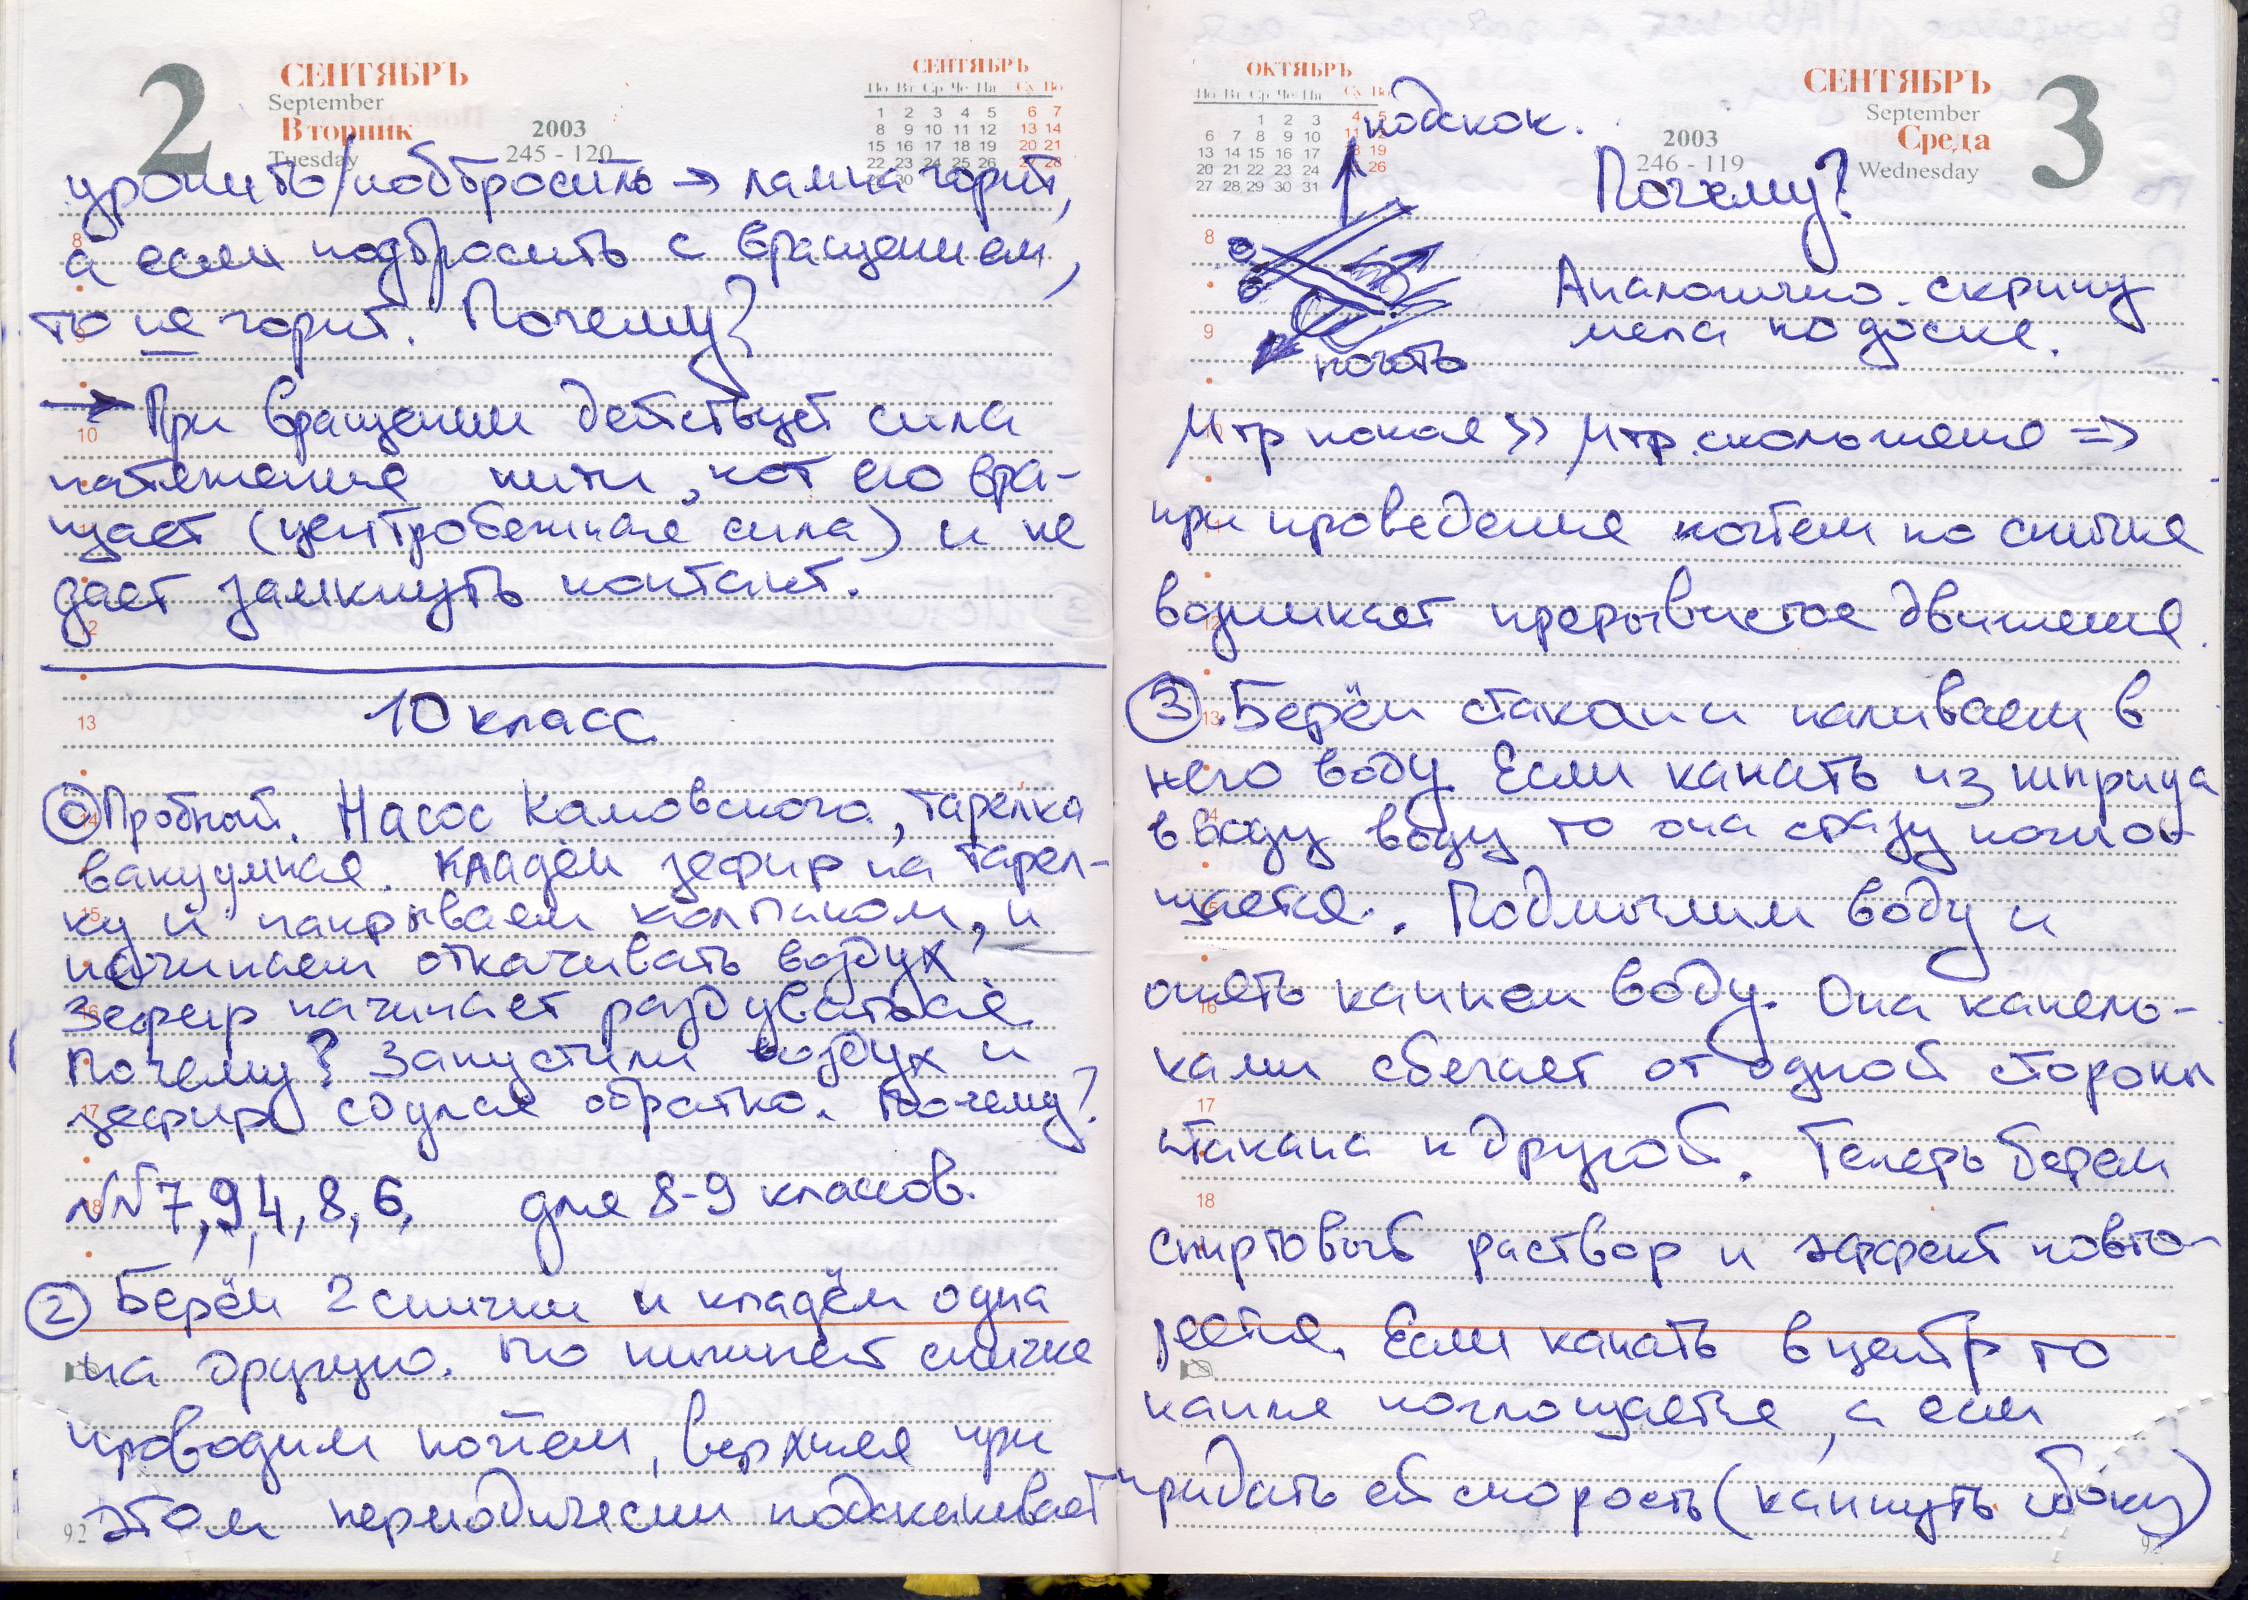 2
СЕНТЯБРЪ
September
Вторник
Tuesday
2003
245 - 120
СЕНТЯБРЬ
По Вт Ср Че Пя Су Во
1 2 3 4 5 6 7
8 9 10 11 12 13 14
15 16 17 18 19 20 21
22 23 24 25 26 27 28
29 30
уронить/подбросить → лампа горит,
а если подбросить с вращением,
то не горит. Почему?
→ При вращении действует сила
натяжения нити, кот его вра-
щает (центробежная сила) и не
дает замкнуть контакт.
10 класс
0 Пробный. Насос Камовского, тарелка
вакуумная. Кладём зефир на тарел-
ку и накрываем колпаком, и
начинаем откачивать воздух,
зефир начинает раздуваться.
Почему? Запустили воздух и
зефир сдулся обратно. Почему?
№№ 7, 9, 4, 8, 6, для 8-9 классов.
2 Берём 2 спички и кладём одна
на другую. По нижней спичке
проводим ногтем, верхняя при
этом периодически подскакивает
92
ОКТЯБРЬ
По Вт Ср Че Пя Су Во
1 2 3 4 5
6 7 8 9 10 11
13 14 15 16 17 18 19
20 21 22 23 24 26
27 28 29 30 31
2003
246 - 119
СЕНТЯБРЪ
September
Среда
Wednesday
3
подскок.
Почему?
ноготь
Аналогично скрипу
мела по доске.
μ тр покоя >> μ тр. скольжения =>
при проведении ногтем по спичке
возникает прерывистое движение.
3. Берём стакан и наливаем в
него воду. Если капать из шприца
в воду воду то она сразу погло-
щается. Подмылим воду и
опять капнем воду. Она капель-
ками сбегает от одной стороны
стакана к другой. Теперь берем
спиртовый раствор и эффект повто-
ряется. Если капать в центр то
капля поглощается, а если
придать ей скорость (капнуть сбоку)